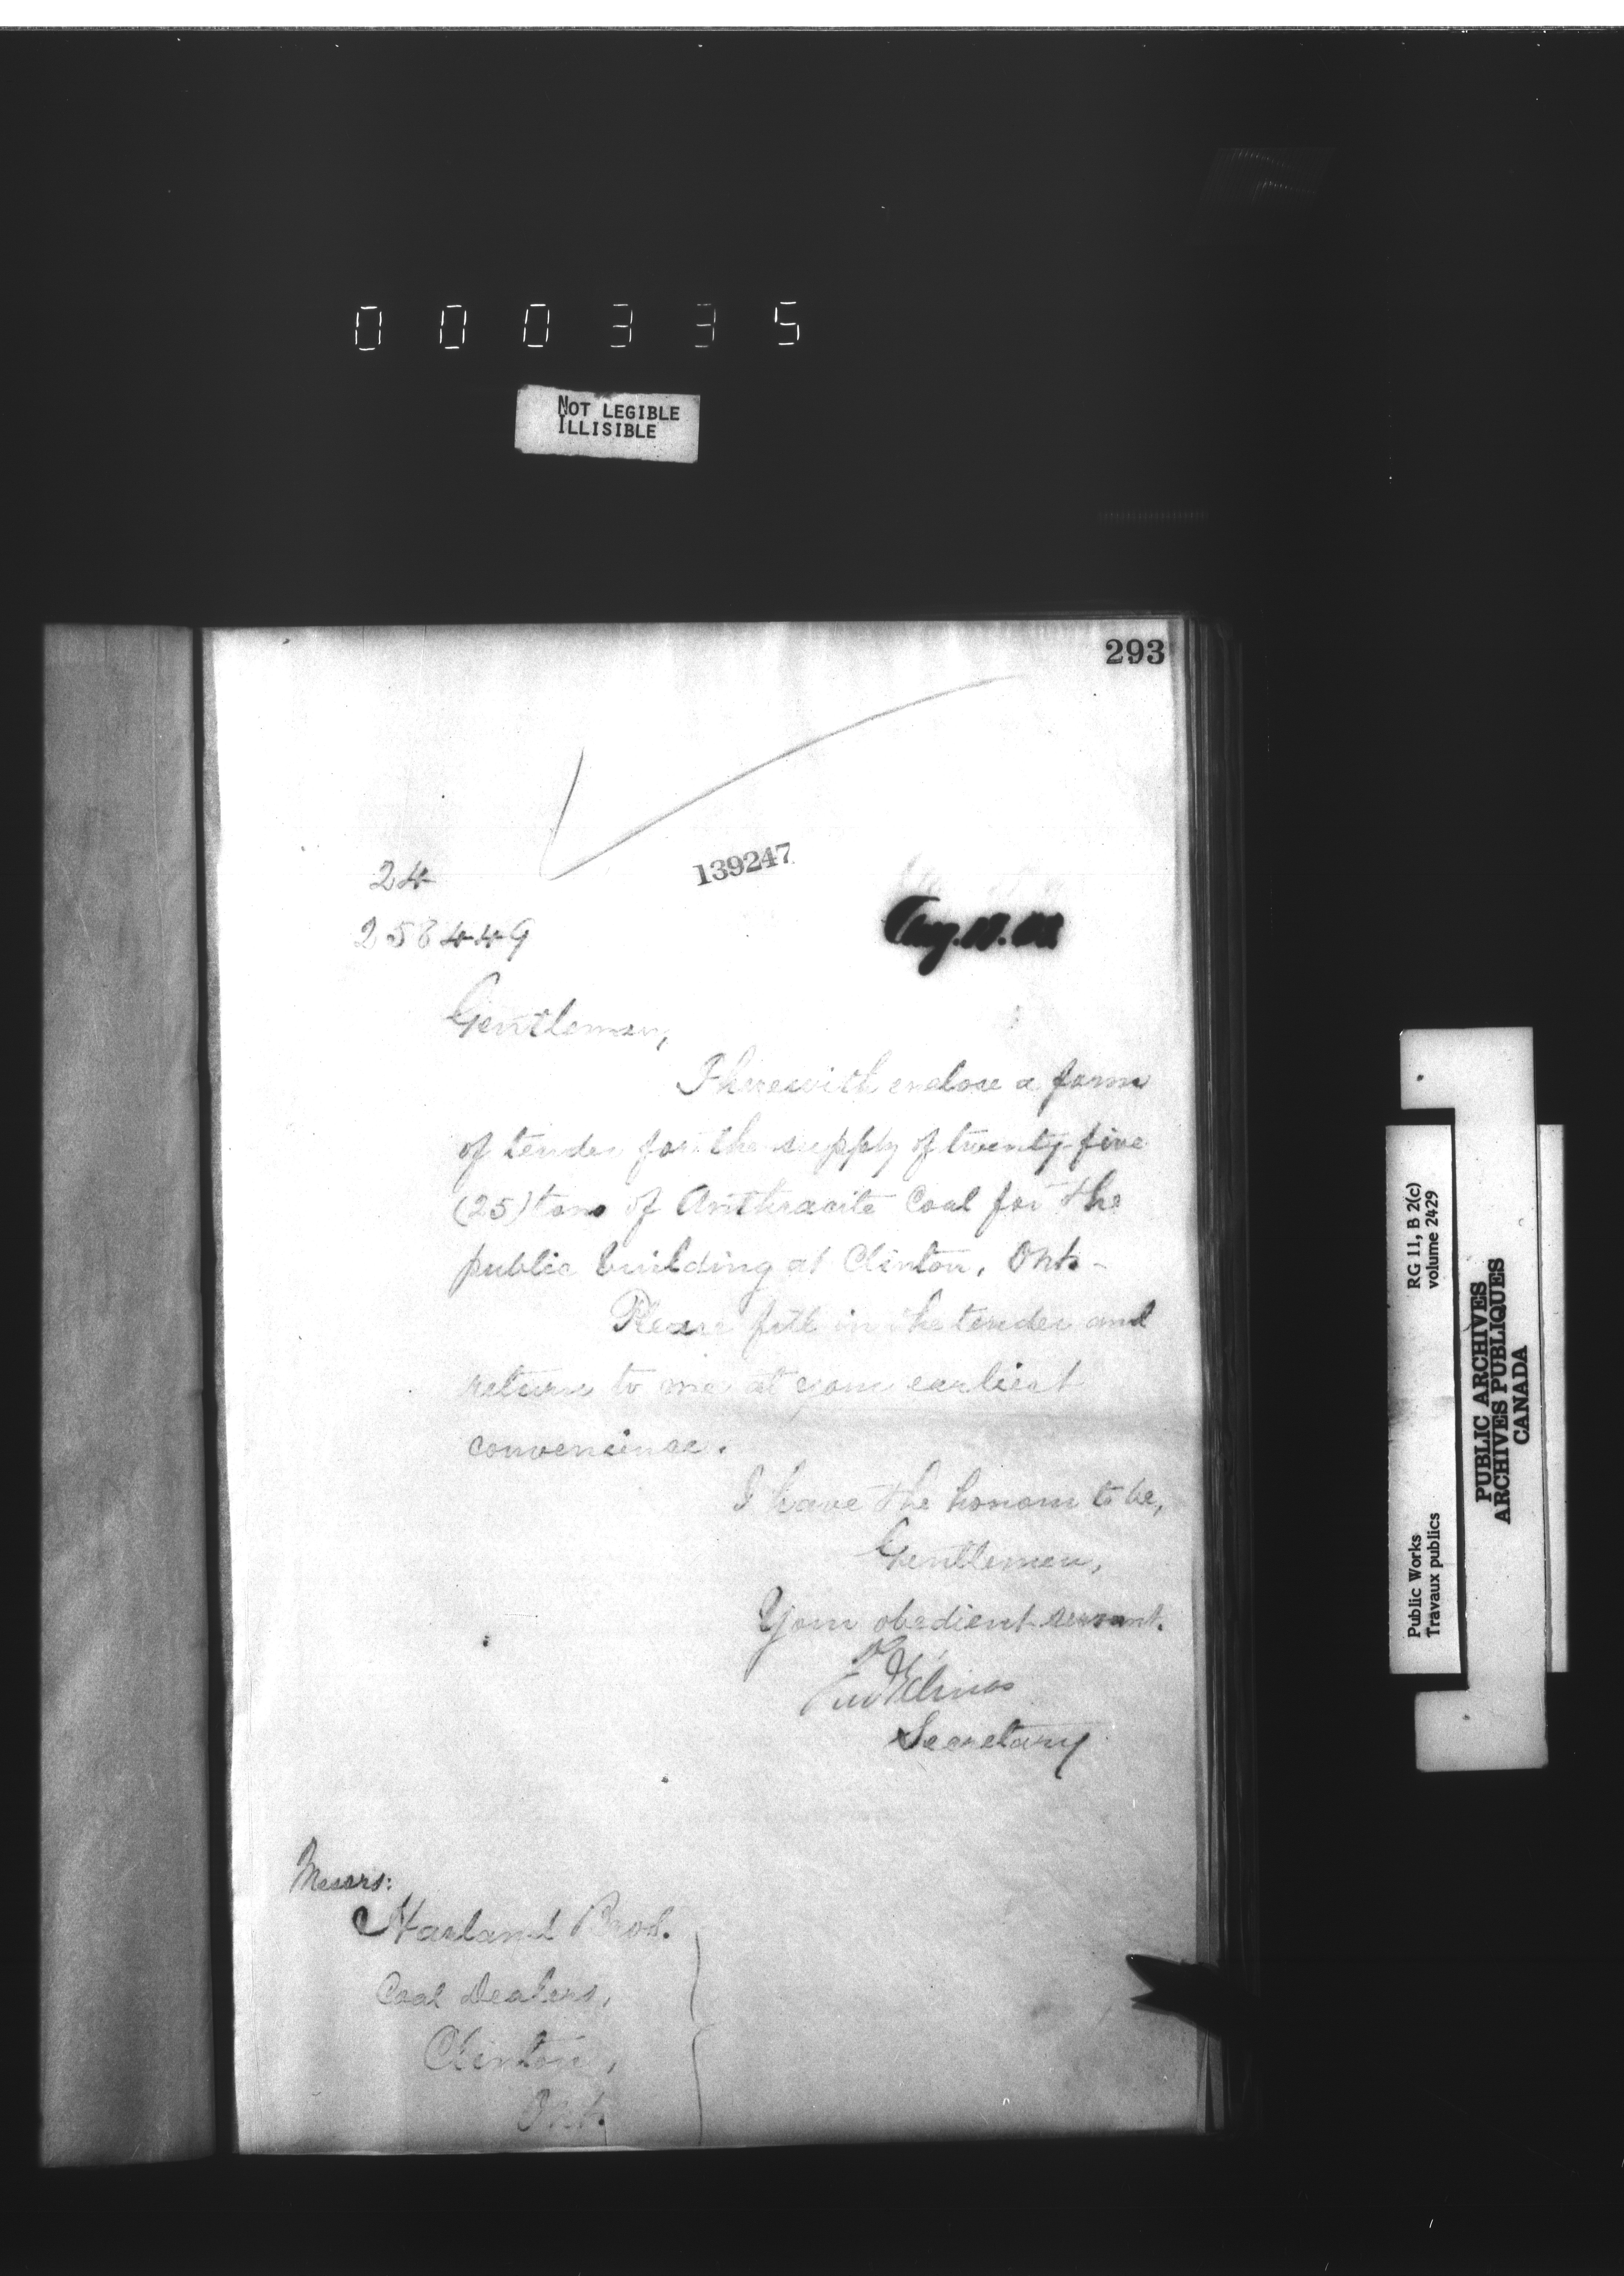 000335
NOT LEGIBLE
ILLISIBLE
293
139247
24
258449
Aug.
Gentlemen,
I herewith enclose a form
of tender for the supply of twenty-five
(25) tons of Anthracite Coal for the
public building at Clinton, Ont-
Please fill in the tender and
return to me at your earliest
convenience.
I have the honour to be,
Gentlemen,
Your obedient servant.
Secretary
Messrs:
Harland Bros.
Coal Dealers,
Clinton,
Ont.
RG 11, B 2(c)
volume 2429
Public Works
Travaux publics
PUBLIC ARCHIVES
ARCHIVES PUBLIQUES
CANADA